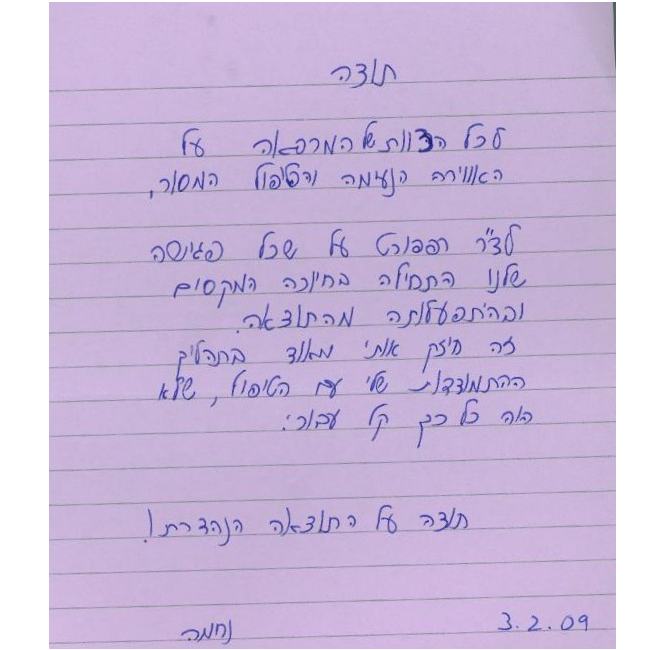 תודה
לכל הצוות של המרפאה על
האווירה הנעימה והטיפול המסור,
לד"ר רפפורט על שכל פגישה
שלנו התחילה בחיוכה המקסים
ובהתפעלותה מהתוצאה.
זה חיזק אותי מאוד בתהליך
ההתמודדות שלי עם הטיפול, שלא
היה כל כך קל עבורי.
תודה על התוצאה הנהדרת!
נחמה 3.2.09